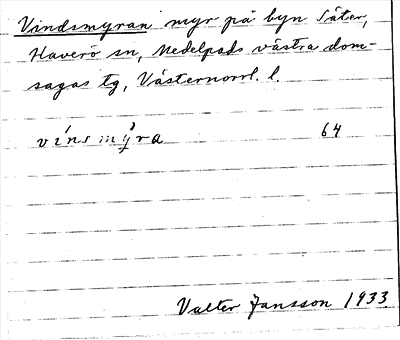 Vindsmyran myr på byn Säter,
Haverö sn, Medelpads västra dom-
sagas tg, Västernorrl. l.
vínsmy̆̀ra 64
Valter Jansson 1933